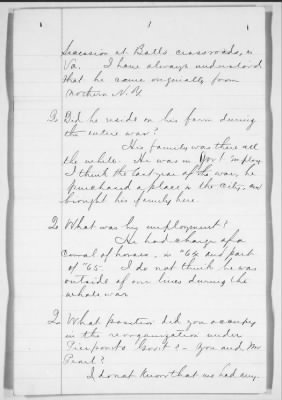 1
Secession at Balls crossroads, in
Va. I have always understood
that he came originally from
northern N.Y.
Q Did he reside on his farm during
the entire war?
His family was there all
the while. He was in Gov't employ.
I think the last year of the war, he
purchased a place in the City, and
brought his family here.
Q What was his employment?
He had charge of a
corral of horses, in "64 and part
of "65. I do not think he was
outside of our lines during the
whole war.
Q What position did you occupy
in the reorganization under
Pierponts Gov't? - You and Mr
Pearl?
I do not know that we had any.